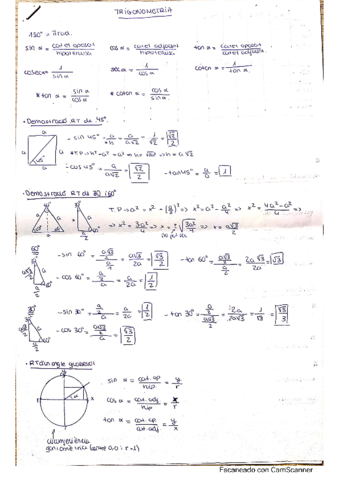 TRIGONOMETRÍA
180° = π rad.
sin α = catet oposat / hipotenusa   cos α = catet adjacent / hipotenusa   tan α = catet oposat / catet adjacent
cosec α = 1 / sin α   sec α = 1 / cos α   cotan α = 1 / tan α
* tan α = sin α / cos α   * cotan α = cos α / sin α
• Demostració RT de 45°.
- sin 45° = a/h = a/a√2 = 1/√2 = √2/2
* T.P → h² = a² + a² = h = √2a² → h = a√2
- cos 45° = a/a√2 = √2/2   - tan 45° = a/a = 1
• Demostració RT de 30° i 60°
T.P → a² = x² + (a/2)² → x² = a² - a²/4 → x² = 4a² - a² / 4 ⇒
⇒ x² = 3a²/4 ⇒ x = √3a²/4 ⇒ x = a√3/2
- sin 60° = a√3/2 / a = a√3/2a = √3/2   - tan 60° = a√3/2 / a/2 = 2a√3/2a = √3
- cos 60° = a/2 / a = a/2a = 1/2
- sin 30° = a/2 / a = a/2a = 1/2   - tan 30° = a/2 / a√3/2 = 2a/2a√3 = 1/√3 = √3/3
- cos 30° = a√3/2 / a = √3/2
• RT d'un angle qualsevol
sin α = cat. op / hip = y/r
cos α = cat. adj / hip = x/r
tan α = cat. op / cat. adj = y/x
circumferència
goniomètrica (centre 0,0 i r=1)
Escaneado con CamScanner